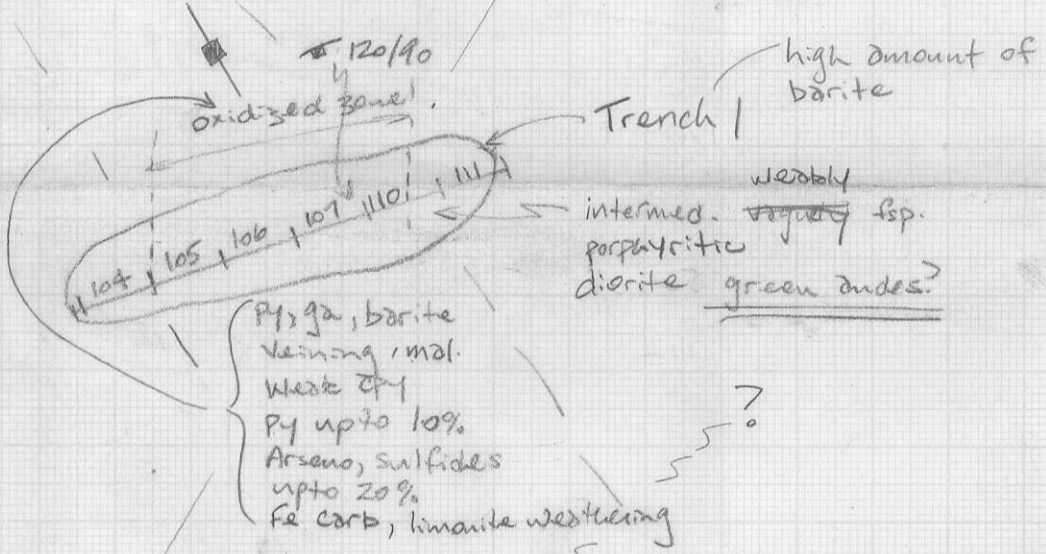 120/90
oxidized zone
high amount of
barite
Trench 1
104 105 106 107 110 111
intermed. weakly fsp.
porphyritic
diorite green andes?
Py, ga, barite
veining, mal.
Weak cpy
Py upto 10%
Arseno, sulfides
upto 20%
Fe carb, limonite weathering
?